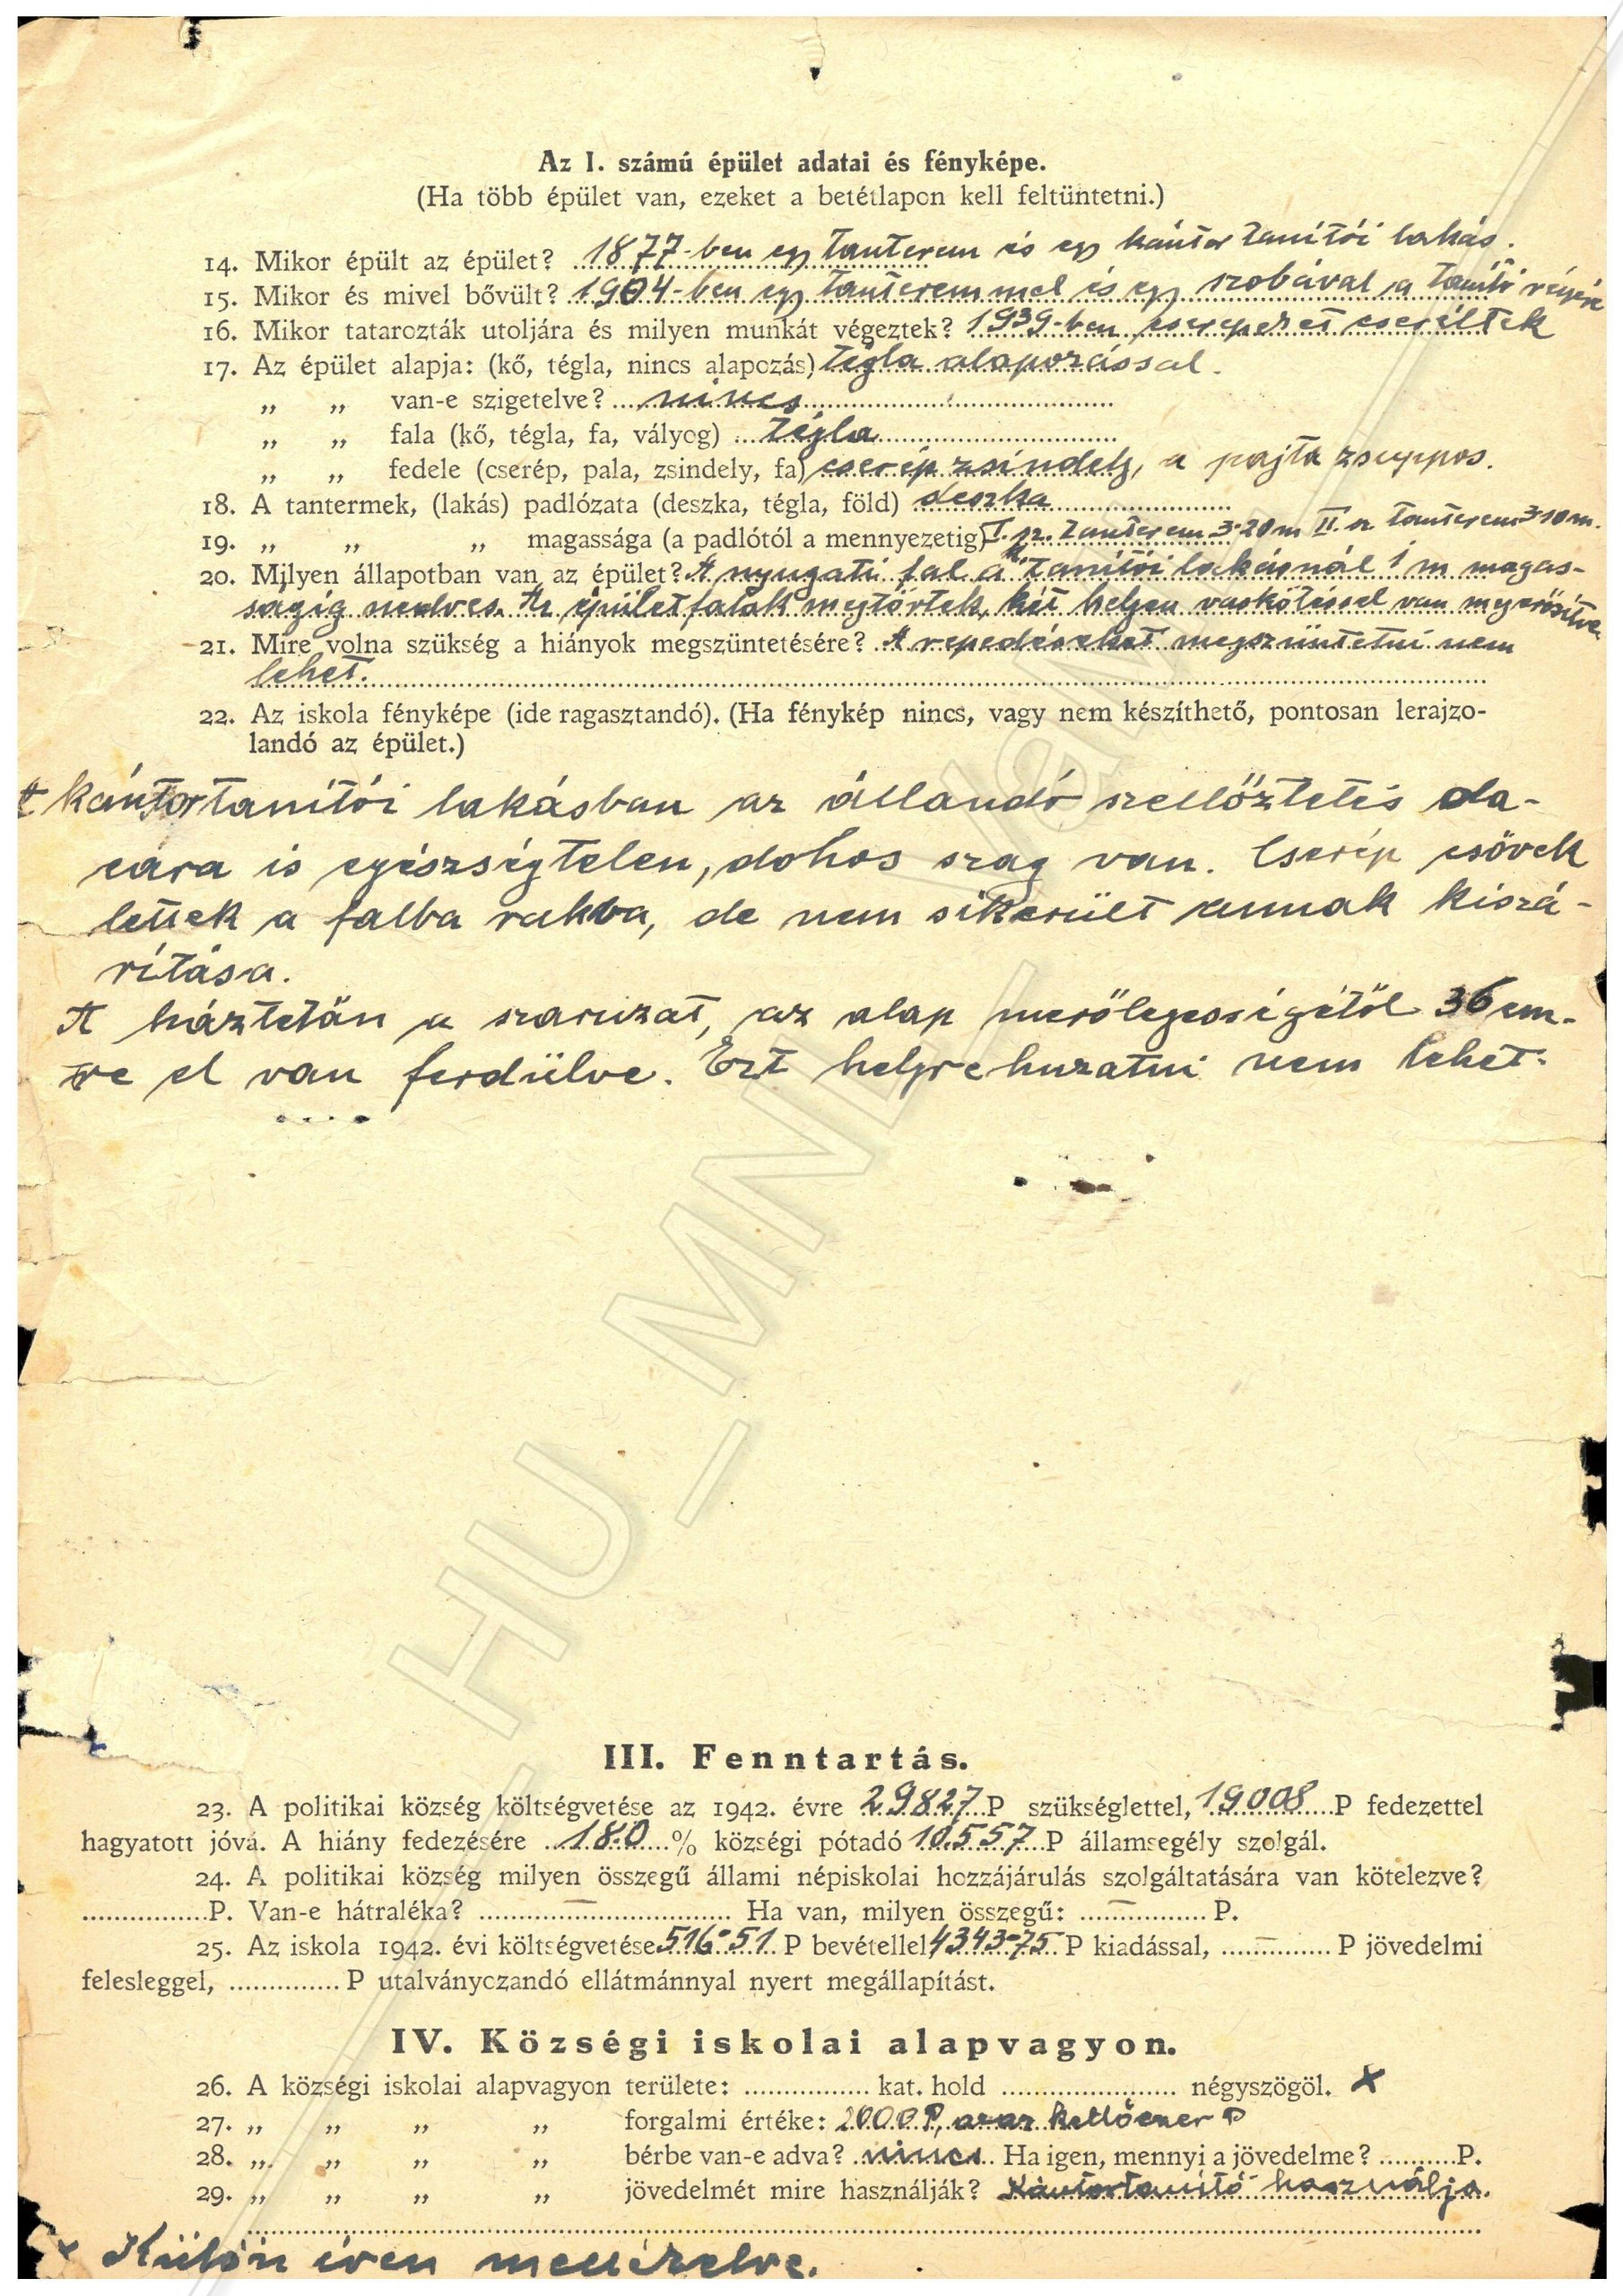 Az I. számú épület adatai és fényképe.
(Ha több épület van, ezeket a betétlapon kell feltüntetni.)
14. Mikor épült az épület? 1877-ben egy tanterem és egy kántor tanítói lakás.
15. Mikor és mivel bővült? 1904-ben egy tanteremmel és egy szobával a tanító részére
16. Mikor tatarozták utoljára és milyen munkát végeztek? 1939-ben cserepeket cseréltek
17. Az épület alapja: (kő, tégla, nincs alapozás) tégla alapozással.
„ „ van-e szigetelve? nincs
„ „ fala (kő, tégla, fa, vályog) tégla
„ „ fedele (cserép, pala, zsindely, fa) cserép zsindely, a pajta zsuppos.
18. A tantermek, (lakás) padlózata (deszka, tégla, föld) deszka
19. „ „ „ magassága (a padlótól a mennyezetig) I. sz. tanterem 3·20 m II. sz tanterem 3·10 m.
20. Milyen állapotban van az épület? A nyugati fal a tanítói lakásnál 1 m magas-
ságig nedves. Az épületfalak megtörtek, két helyen vaskötéssel van megerősítve.
21. Mire volna szükség a hiányok megszüntetésére? A repedéseket megszüntetni nem
lehet.
22. Az iskola fényképe (ide ragasztandó). (Ha fénykép nincs, vagy nem készíthető, pontosan lerajzo-
landó az épület.)
A kántortanítói lakásban az állandó szellőztetés da-
cára is egészségtelen, dohos szag van. Cserép csövek
lettek a falba rakva, de nem sikerült annak kiszá-
rítása.
A háztetőn a szaruzat, az alap merőlegességétől 36 cm-
re el van ferdülve. Ezt helyrehuzatni nem lehet.
III. Fenntartás.
23. A politikai község költségvetése az 1942. évre 29827 P szükséglettel, 19008 P fedezettel
hagyatott jóvá. A hiány fedezésére 180 % községi pótadó 10557 P államsegély szolgál.
24. A politikai község milyen összegű állami népiskolai hozzájárulás szolgáltatására van kötelezve?
P. Van-e hátraléka? — Ha van, milyen összegű: — P.
25. Az iskola 1942. évi költségvetése 516·51 P bevétellel 4343·75 P kiadással, — P jövedelmi
felesleggel, P utalványozandó ellátmánnyal nyert megállapítást.
IV. Községi iskolai alapvagyon.
26. A községi iskolai alapvagyon területe: kat. hold négyszögöl. x
27. „ „ „ „ forgalmi értéke: 2000 P, azaz kettőezer P
28. „ „ „ „ bérbe van-e adva? nincs Ha igen, mennyi a jövedelme? P.
29. „ „ „ „ jövedelmét mire használják? Kántortanító használja.
x Külön íven mellékelve.
HU_MNL_VaML